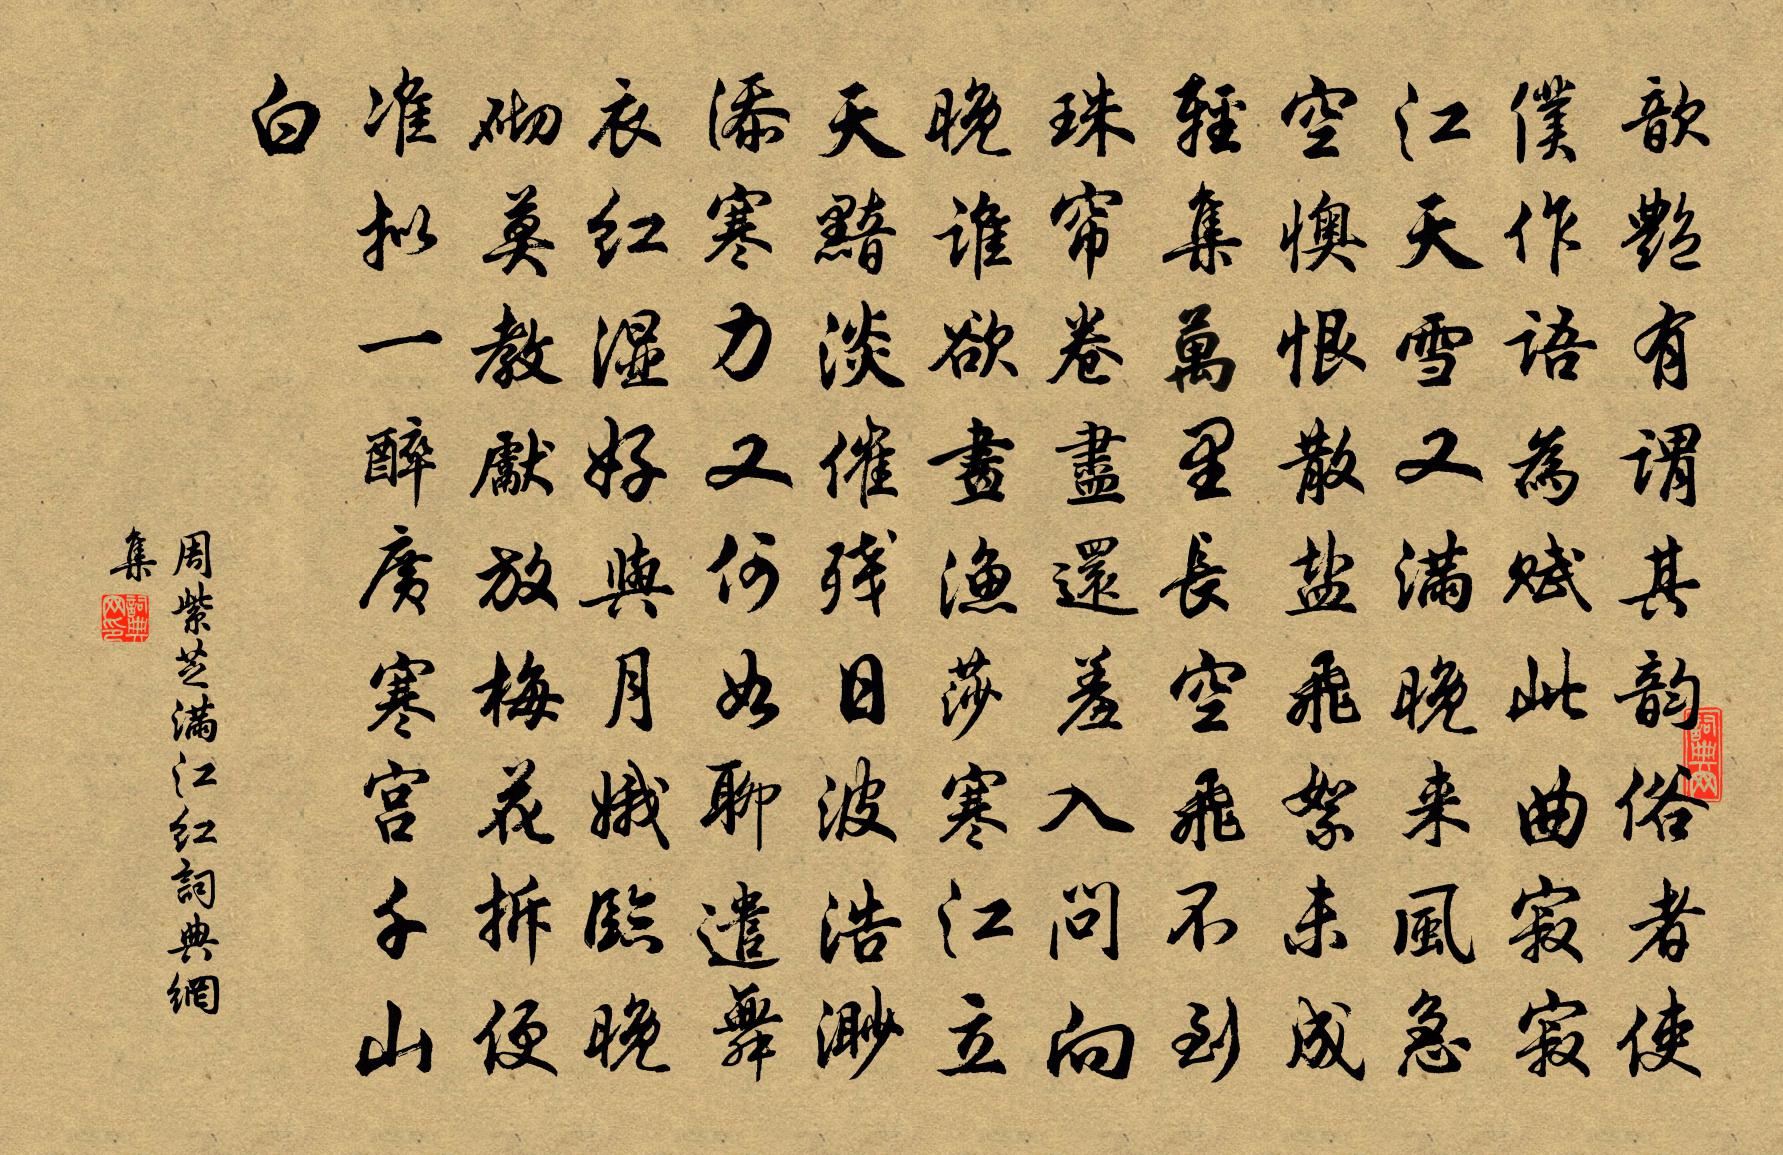 歆艷有謂其韵俗者使
僕作語為賦此曲寂寂
江天雪又满晚来風急
空懊恨散盐飛絮未成
輕集萬里長空飛不到
珠帘卷盡還羞入問向
晚誰欲畫漁莎寒江立
天黯淡催残日波浩渺
添寒力又何如聊遣舞
衣红湿好與月娥臨晚
砌莫教獻放梅花拆便
准拟一醉廣寒宫千山
白
周紫芝满江红詞典網
集
詞典网
詞典网印